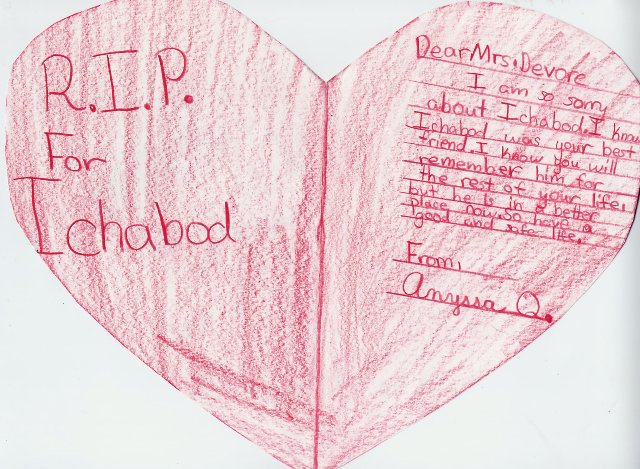 R.I.P.
For
Ichabod
Dear Mrs. Devore
I am so sorry
about Ichabod. I know
Ichabod was your best
friend. I know you will
remember him for
the rest of your life,
but he is in a better
place now. So have a
good and safe life.
From,
Anyssa Q.